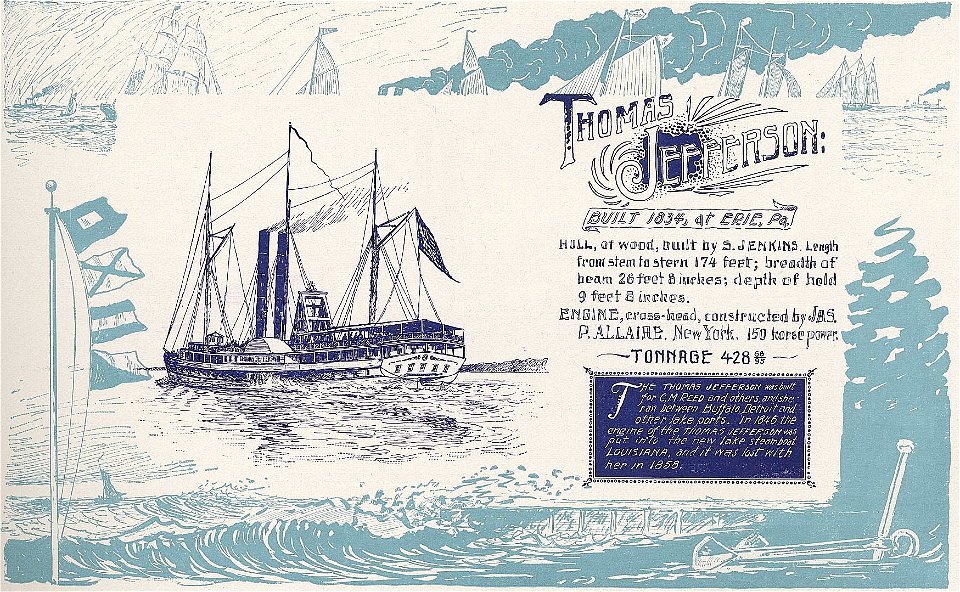 THOMAS
JEFFERSON:
BUILT 1834, at ERIE, Pa.
HULL, of wood, built by S. JENKINS. Length
from stem to stern 174 feet; breadth of
beam 26 feet 8 inches; depth of hold
9 feet 8 inches.
ENGINE, cross-head, constructed by JAS.
P. ALLAIRE, New York. 150 horse power.
— TONNAGE 428 —
THE THOMAS JEFFERSON was built
for C. M. REED and others, and she
ran between Buffalo, Detroit and
other lake ports. In 1846 the
engine of the THOMAS JEFFERSON was
put into the new lake steamboat
LOUISIANA, and it was lost with
her in 1858.